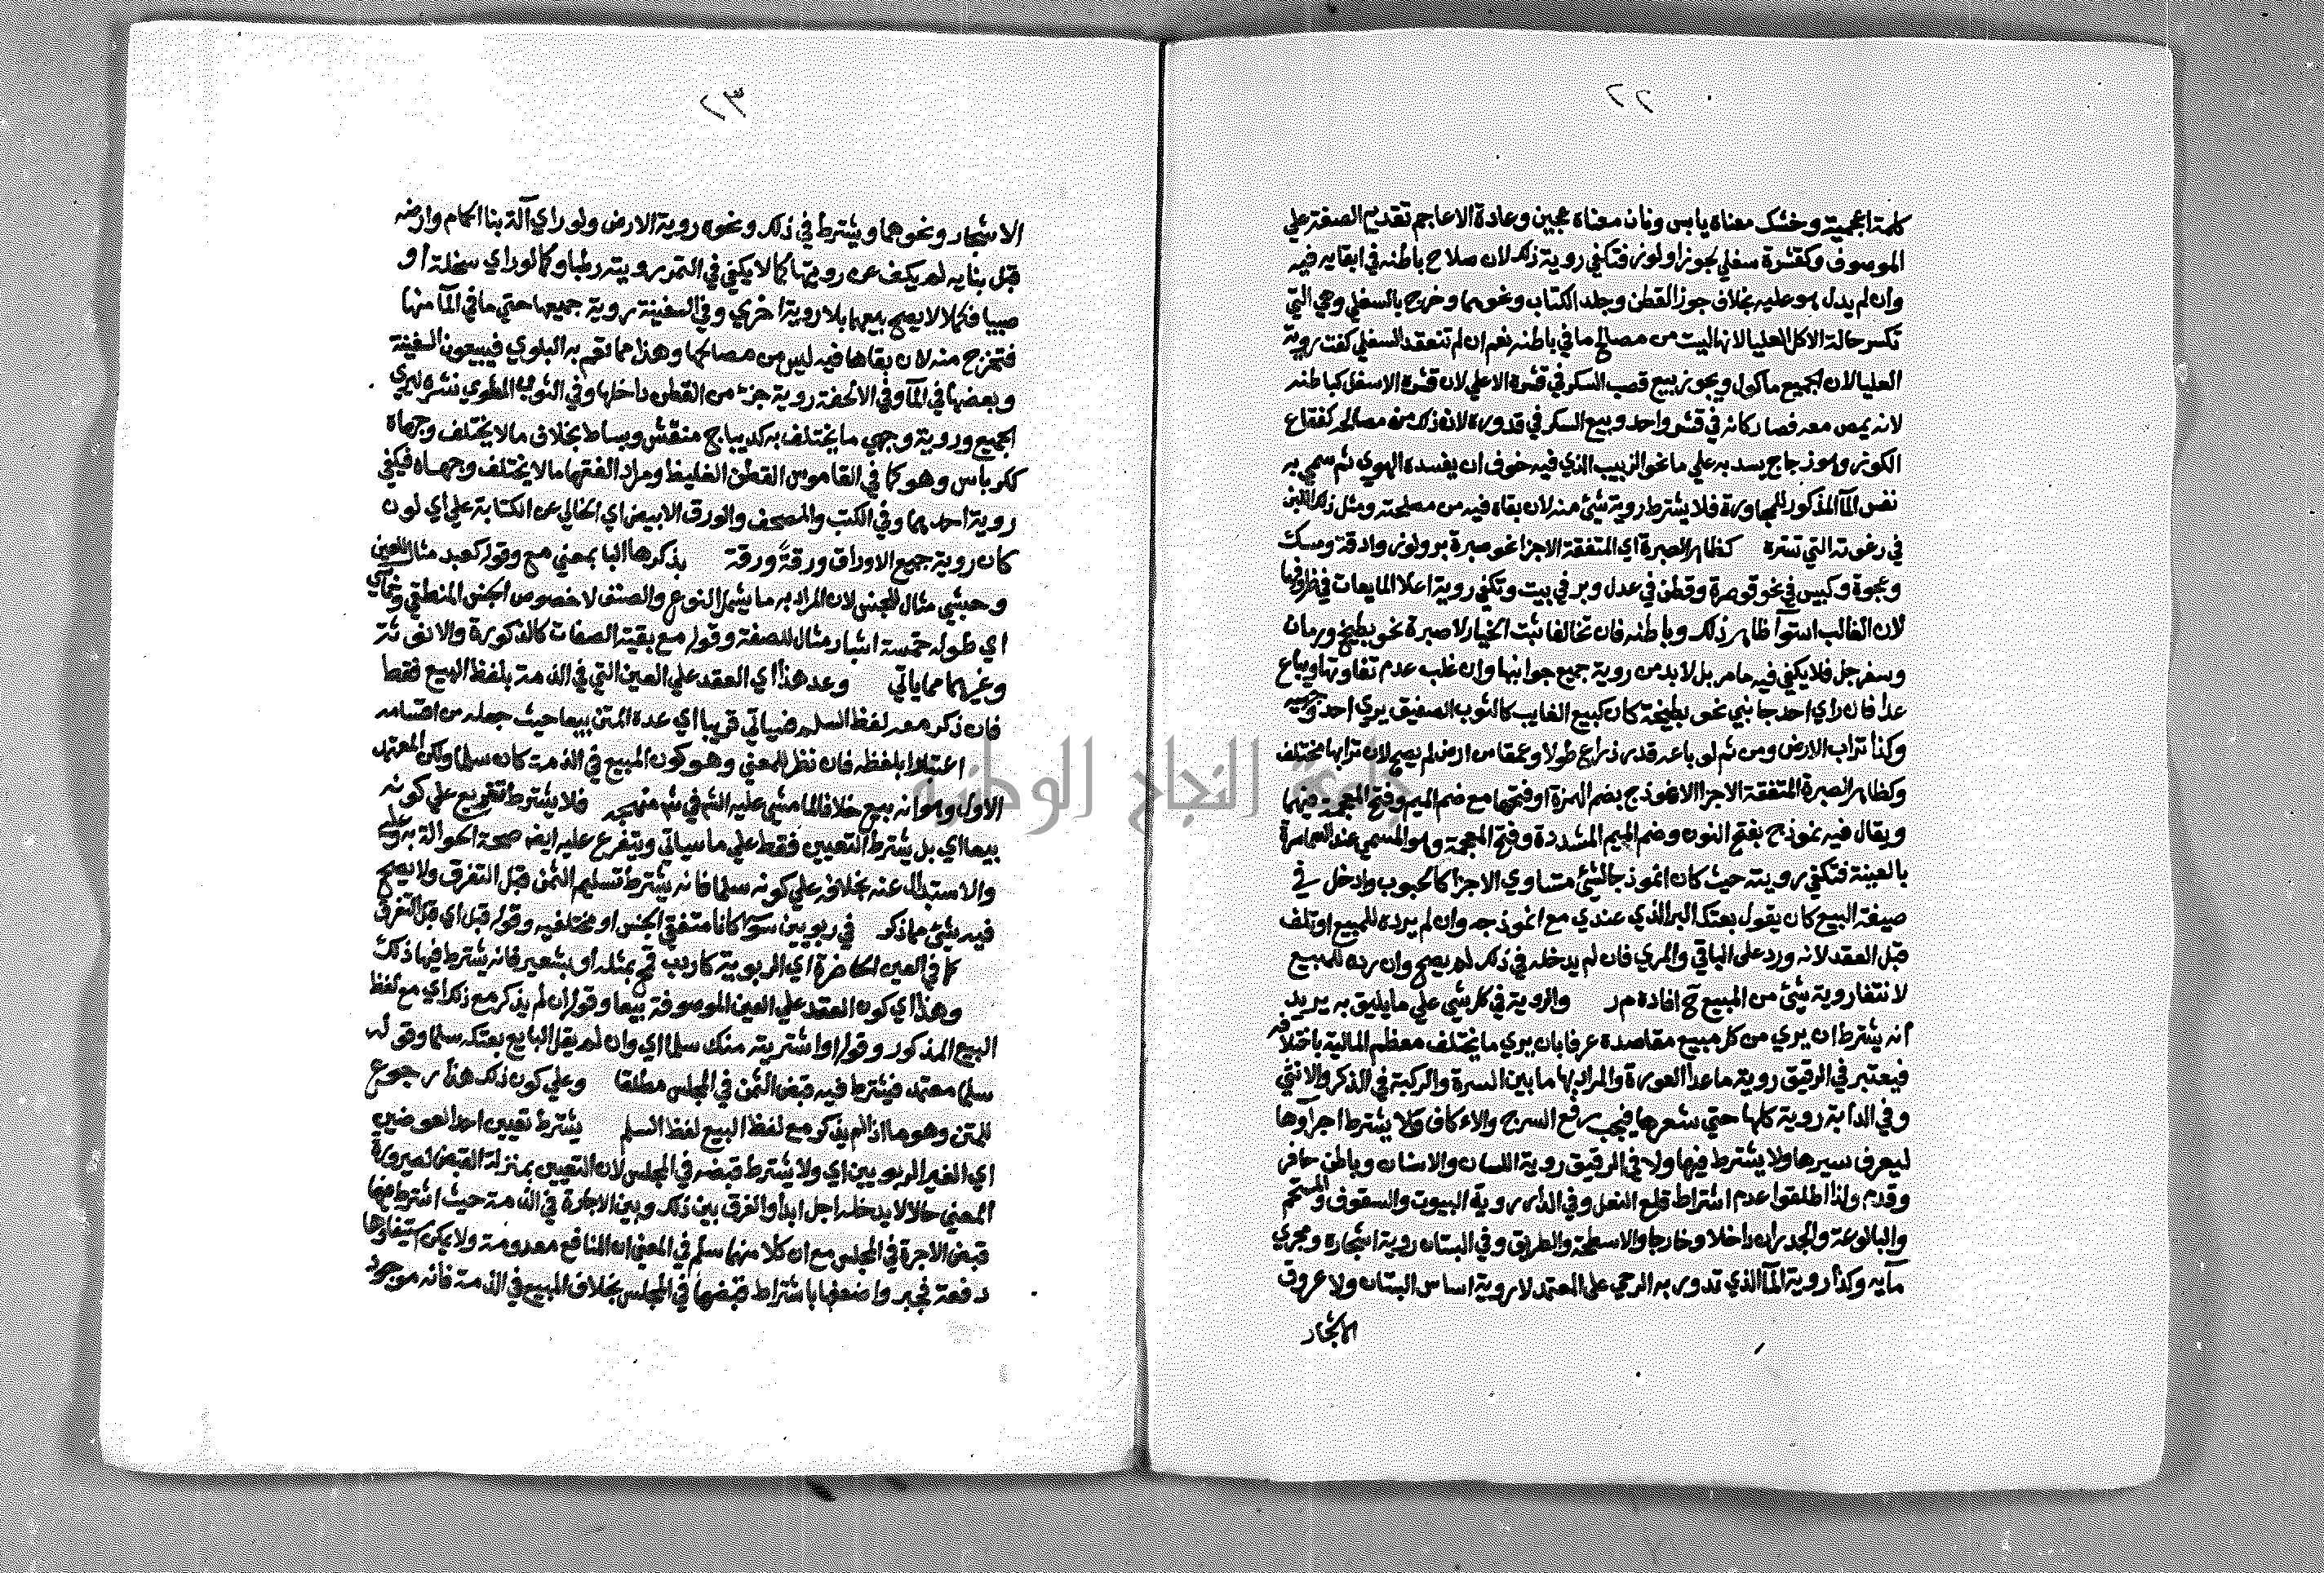 ٢٢
كلمة اعجمية وخشك معناه يابس ونان معناه عجين وعادة الاعاجم تقديم الصفة علي
الموصوف وكقشرة سفلي لجوز اولوز فتكفي روية ذلك لان صلاح باطنه في ابقايه فيه
وان لم يدل هو عليه بخلاف جوز القطن وجلد الكتاب ونحوهما وخرج بالسفلي وهي التي
تكسر حالة الاكل العليا لانها ليست من مصالح ما في باطنه نعم ان لم تنعقد السفلي كفت روية
العليا لان الجميع ماكول ويجوز بيع قصب السكر في قشره الاعلي لان قشره الاسفل كباطنه
لانه يمص معه فصار كانه في قشر واحد وبيع السكر في قدوره لان ذلك من مصالحه كفقاع
الكوز وهو زجاج يسد به علي ما نحو الزبيب الذي فيه خوف ان يفسده الهوي ثم سمي به
نفس المآ المذكور للمجاورة فلا يشترط روية شئ منه لان بقاه فيه من مصلحته ومثل ذلك اللبن
في رغوته التي تستره كظاهر الصبرة اي المتفقة الاجزا نحو صبرة بر ولوز وادقة ومسك
وعجوة وكبيس في نحو قوصرة وقطن في عدل وبر في بيت وتكفي روية اعلا المايعات في ظروفها
لان الغالب استوآ ظاهر ذلك وباطنه فان تخالفا ثبت الخيار لا صبرة نحو بطيخ ورمان
وسفرجل فلا يكفي فيه ما مر بل لابد من روية جميع جوانبها وان غلب عدم تفاوتها ويباع
عدا فان راي احد جانبي نحو بطيخة كان كبيع الغايب كالثوب الصفيق يري احد وجهيه
وكذا تراب الارض ومن ثم لو باعه قدر ذراع طولا وعمقا من ارض لم يصح لان ترابها مختلف
وكظاهر الصبرة المتفقة الاجزا الانموذج بضم الهمزة او فتحها مع ضم الميم وفتح المعجمة فيهما
ويقال فيه نموذج بفتح النون وضم الميم المشددة وفتح المعجمة وهو المسمي عند السماسرة
بالعينة فتكفي رويته حيث كان انموذجا لشئ متساوي الاجزا كالحبوب وادخل في
صيغة البيع كان يقول بعتك البر الذي عندي مع انموذجه وان لم يرده للمبيع او تلف
قبل العقد لانه ورد علي الباقي والمري فان لم يدخله في ذلك لم يصح وان رده للمبيع
لانتفا روية شئ من المبيع ح افاده م ر والروية في كل شي علي ما يليق به يريد
انه يشترط ان يري من كل مبيع مقاصده عرفا بان يري ما يختلف معظم المالية باختلافه
فيعتبر في الرقيق روية ما عدا العورة والمراد بها ما بين السرة والركبة في الذكر والانثي
وفي الدابة روية كلها حتي شعرها فيجب رفع السرج والاكاف ولا يشترط اجرآوها
ليعرف سيرها ولا يشترط فيها ولا في الرقيق روية اللسان والاسنان وباطن حافر
وقدم ولذا اطلقوا عدم اشتراط قلع النعل وفي الدار روية البيوت والسقوف والمستحم
والبالوعة والجدران داخلا وخارجا والاسطحة والطريق وفي البستان روية اشجاره ومجري
مآيه وكذا روية المآ الذي تدور به الرحي علي المعتمد لا روية اساس البستان ولا عروق
الاشجار
٢٣
الاشجار ونحوهما ويشترط في ذلك ونحوه روية الارض ولو راي آلة بنا الحمام وارضه
قبل بنايه لم يكف عن رويتها كما لا يكفي في التمر رويته رطبا وكما لو راي سخلة او
صبيا فكملا لا يصح بيعهما بلا روية اخري وفي السفينة روية جميعها حتي ما في المآ منها
فتخرج منه لان بقاها فيه ليس من مصالحها وهذا مما تعم به البلوي فيبيعون السفينة
وبعضها في المآ وفي الالحفة روية جزء من القطن داخلها وفي الثوب المطوي نشره ليري
الجميع وروية وجهي ما يختلف به كديباج منقش وبساط بخلاف ما لا يختلف وجهاه
ككرباس وهو كما في القاموس القطن الغليظ ومراد الفقها ما لا يختلف وجهاه فيكفي
روية احدهما وفي الكتب والمصحف والورق الابيض اي الخالي عن الكتابة علي اي لون
كان روية جميع الاوراق ورقة ورقة بذكرها البا بمعني مع وقوله كعبد مثال للعين
وحبشي مثال للجنس لان المراد به ما يشمل النوع والصنف لا خصوص الجنس المنطقي وخماسي
اي طوله خمسة اشبار مثال للصفة وقوله مع بقية الصفات كالذكورة والانوثة
وغيرهما مما ياتي وعد هذا اي العقد علي العين التي في الذمة بلفظ البيع فقط
فان ذكر معه لفظ السلم فسياتي قريبا اي عده المتن بيعا حيث جعله من اقسامه
اعتبارا بلفظه فان نظر للمعني وهو كون المبيع في الذمة كان سلما ولكن المعتمد
الاول وهو انه بيع خلافا لما مشي عليه الشم في شم منهجه فلا يشترط تفريع علي كونه
بيعا اي بل يشترط التعيين فقط علي ما سياتي ويتفرع عليه ايضا صحة الحوالة به وعليه
والاستبدال عنه بخلافه علي كونه سلما فانه يشترط تسليم الثمن قبل التفرق ولا يصح
فيه شئ مما ذكر في ربويين سوآ كانا متفقي الجنس او مختلفيه وقوله قبل اي قبل التفرق
كما في العين الحاضرة اي الربوية كاردب قمح بمثله او بشعير فانه يشترط فيها ذلك
وهذا اي كون العقد علي العين الموصوفة بيعا وقوله ان لم يذكر مع ذلك اي مع لفظ
البيع المذكور وقوله او اشتريته منك سلما اي وان لم يقل البايع بعتكه سلما وقوله
سلما معتمد فيشترط فيه قبض الثمن في المجلس مطلقا وعلي كون ذلك هذا رجوع
للمتن وهو ما اذا لم يذكر مع لفظ البيع لفظ السلم يشترط تعيين احد العوضين
اي الغير الربويين اي ولا يشترط قبضه في المجلس لان التعيين بمنزلة القبض لصيرورة
المعني حالا لا يدخله اجل ابدا والفرق بين ذلك وبين الاجارة في الذمة حيث اشترط فيها
قبض الاجرة في المجلس مع ان كلا منهما سلم في المعني ان المنافع معدومة ولا يمكن استيفاوها
دفعة فجبروا ضعفها باشتراط قبضها في المجلس بخلاف المبيع في الذمة فانه موجود
جامعة النجاح الوطنية